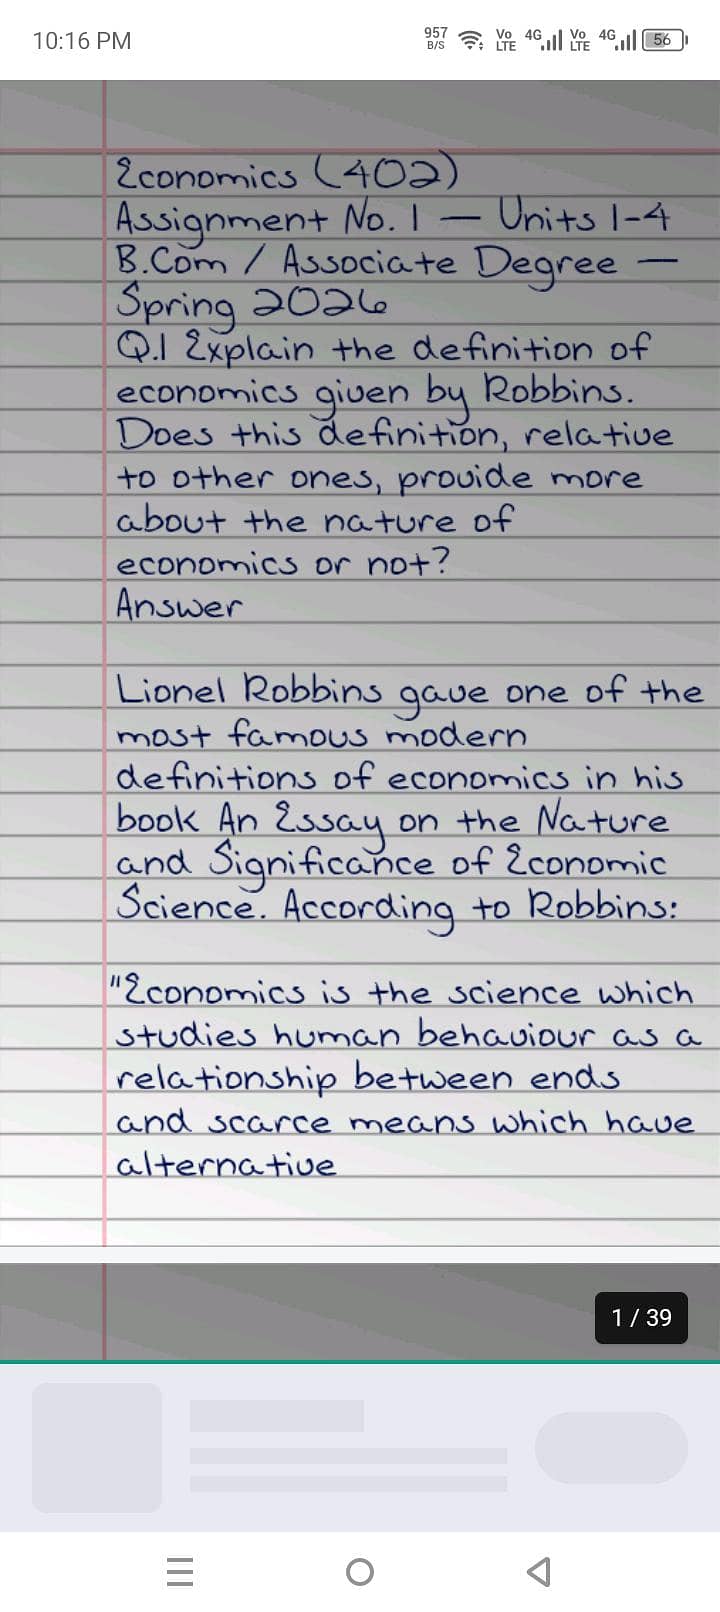 10:16 PM
957 B/S Vo LTE 4G Vo LTE 4G 56
Economics (402)
Assignment No. 1 — Units 1-4
B.Com / Associate Degree —
Spring 2026
Q.1 Explain the definition of
economics given by Robbins.
Does this definition, relative
to other ones, provide more
about the nature of
economics or not?
Answer
Lionel Robbins gave one of the
most famous modern
definitions of economics in his
book An Essay on the Nature
and Significance of Economic
Science. According to Robbins:
"Economics is the science which
studies human behaviour as a
relationship between ends
and scarce means which have
alternative
1 / 39